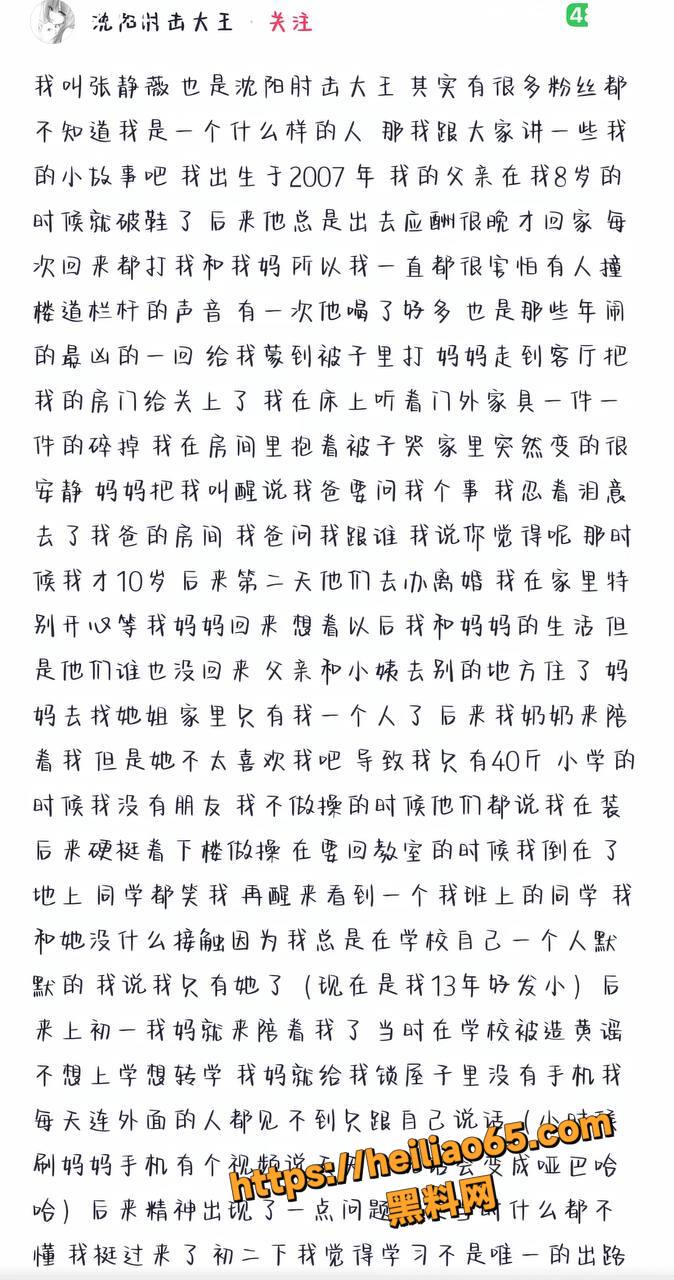 沈阳肘击大王 · 关注
48
我叫张静薇 也是沈阳肘击大王 其实有很多粉丝都
不知道我是一个什么样的人 那我跟大家讲一些我
的小故事吧 我出生于2007年 我的父亲在我8岁的
时候就破鞋了 后来他总是出去应酬很晚才回家 每
次回来都打我和我妈 所以我一直都很害怕有人撞
楼道栏杆的声音 有一次他喝了好多 也是那些年闹
的最凶的一回 给我蒙到被子里打 妈妈走到客厅把
我的房门给关上了 我在床上听着门外家具一件一
件的碎掉 我在房间里抱着被子哭 家里突然变的很
安静 妈妈把我叫醒说我爸要问我个事 我忍着泪意
去了我爸的房间 我爸问我跟谁 我说你觉得呢 那时
候我才10岁 后来第二天他们去办离婚 我在家里特
别开心等我妈妈回来 想着以后我和妈妈的生活 但
是他们谁也没回来 父亲和小姨去别的地方住了 妈
妈去找她姐 家里只有我一个人了 后来我奶奶来陪
着我 但是她不太喜欢我吧 导致我只有40斤 小学的
时候我没有朋友 我不做操的时候他们都说我在装
后来硬挺着下楼做操 在要回教室的时候我倒在了
地上 同学都笑我 再醒来看到一个我班上的同学 我
和她没什么接触因为我总是在学校自己一个人默
默的 我说我只有她了（现在是我13年好发小）后
来上初一我妈就来陪着我了 当时在学校被造黄谣
不想上学想转学 我妈就给我锁屋子里没有手机我
每天连外面的人都见不到只跟自己说话（小时候
刷妈妈手机有个视频说 会变成哑巴哈
哈）后来精神出现了一点问题 什么都不
懂 我挺过来了 初二下我觉得学习不是唯一的出路
https://heiliao65.com
黑料网